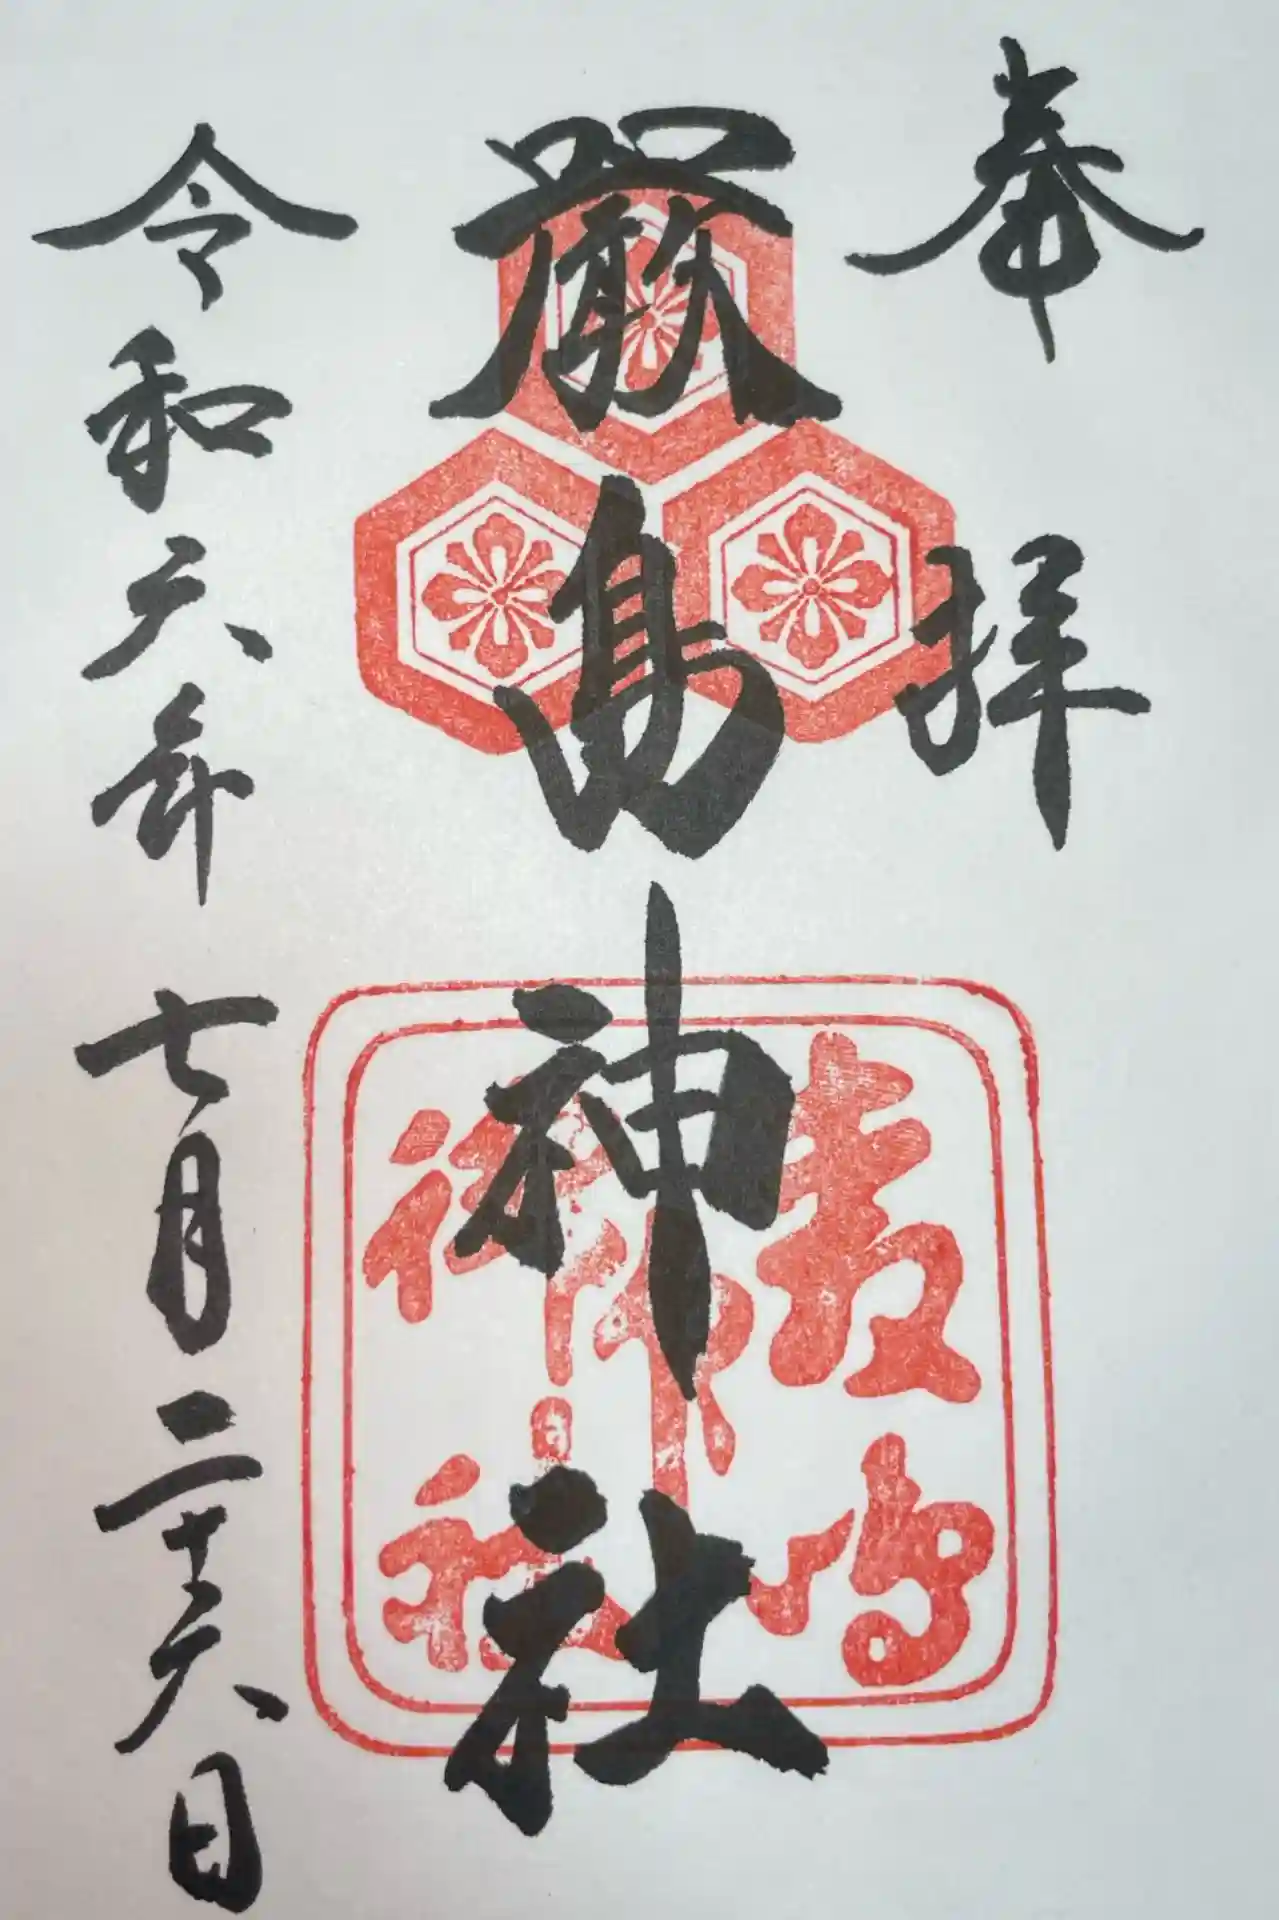 奉拝
厳島神社
嚴嶋神社
令和六年七月二十六日